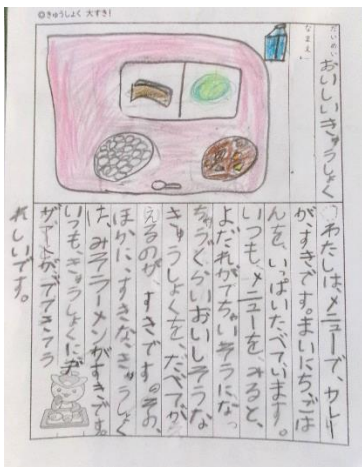 ◎きゅうしょく 大すき!
だいめい
おいしいきゅうしょく
なまえ
わたしは、メニューで、カレー
が、すきです。まいにち、ごは
んを、いっぱいたべています。
いつも、メニューを、みると、
よだれがでちゃいそうになっ
ちゃうくらいおいしそうな
きゅうしょくを、たべてが
えるのが、すきです。その、
ほかに、すきなきゅうしょく
は、みそラーメンがすきです。
いつも、きゅうしょくに
ザートがでてきてう
れしいです。